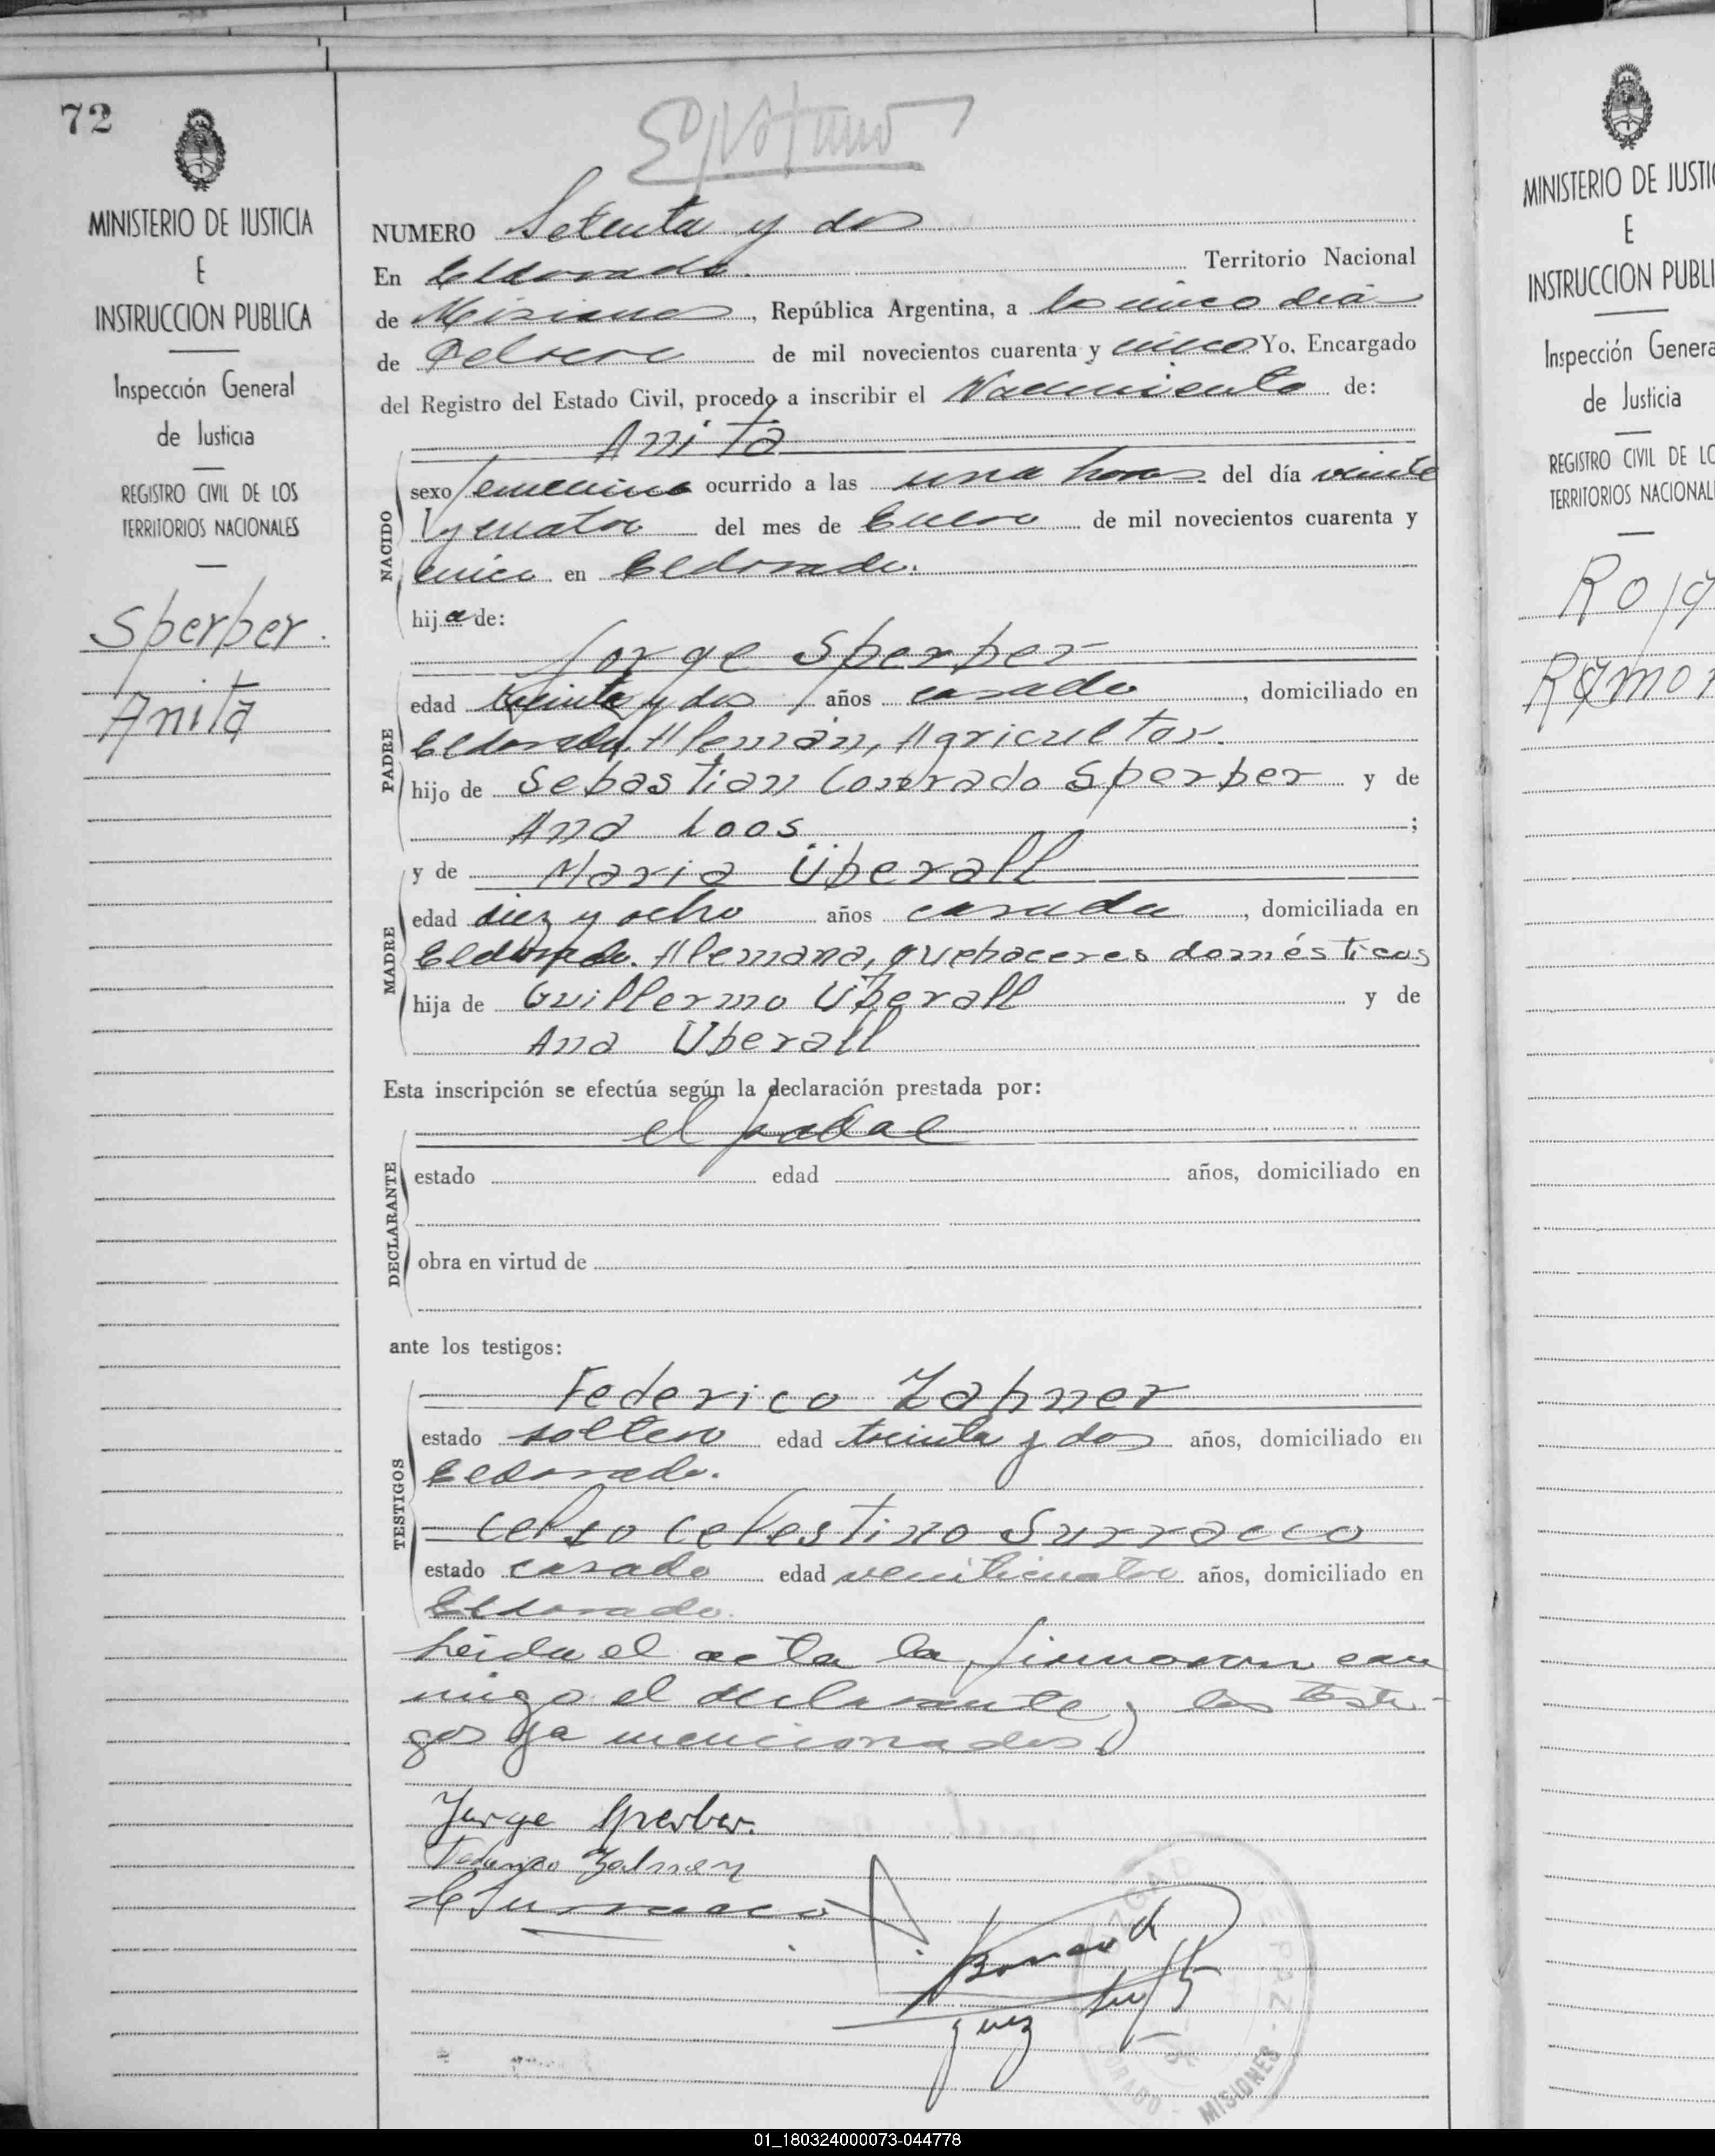 72
MINISTERIO DE JUSTICIA
E
INSTRUCCION PUBLICA
Inspección General
de Justicia
REGISTRO CIVIL DE LOS
TERRITORIOS NACIONALES
Sperber.
Anita
NUMERO Setenta y dos
En Eldorado. Territorio Nacional
de Misiones, República Argentina, a los cinco días
de Febrero de mil novecientos cuarenta y cinco Yo, Encargado
del Registro del Estado Civil, procedo a inscribir el Nacimiento de:
Anita
NACIDO
sexo femenino ocurrido a las una horas. del día veinte
y cuatro del mes de Enero de mil novecientos cuarenta y
cinco en Eldorado.
hija de:
Jorge Sperber
PADRE
edad treinta y dos años casado, domiciliado en
Eldorado. Alemán, Agricultor.
hijo de Sebastian Conrado Sperber y de
Ana Loos;
MADRE
y de Maria Überall
edad diez y ocho años casada, domiciliada en
Eldorado. Alemana, quehaceres domésticos
hija de Guillermo Überall y de
Ana Überall
Esta inscripción se efectúa según la declaración prestada por:
DECLARANTE
el padre
estado edad años, domiciliado en
obra en virtud de
ante los testigos:
TESTIGOS
Federico Zahner
estado soltero edad treinta y dos años, domiciliado en
Eldorado.
Celso Celestino Surracco
estado casado edad veinticuatro años, domiciliado en
Eldorado.
Leida el acta la firmaron con
migo el declarante y los testi-
gos ya mencionados.
Jorge Sperber.
Federico Zahner
C Surracco
Juez
MISIONES
MINISTERIO DE JUSTIC
E
INSTRUCCION PUBLI
Inspección Genera
de Justicia
REGISTRO CIVIL DE LO
TERRITORIOS NACIONAL
Roja
Ramon
01_180324000073-044778